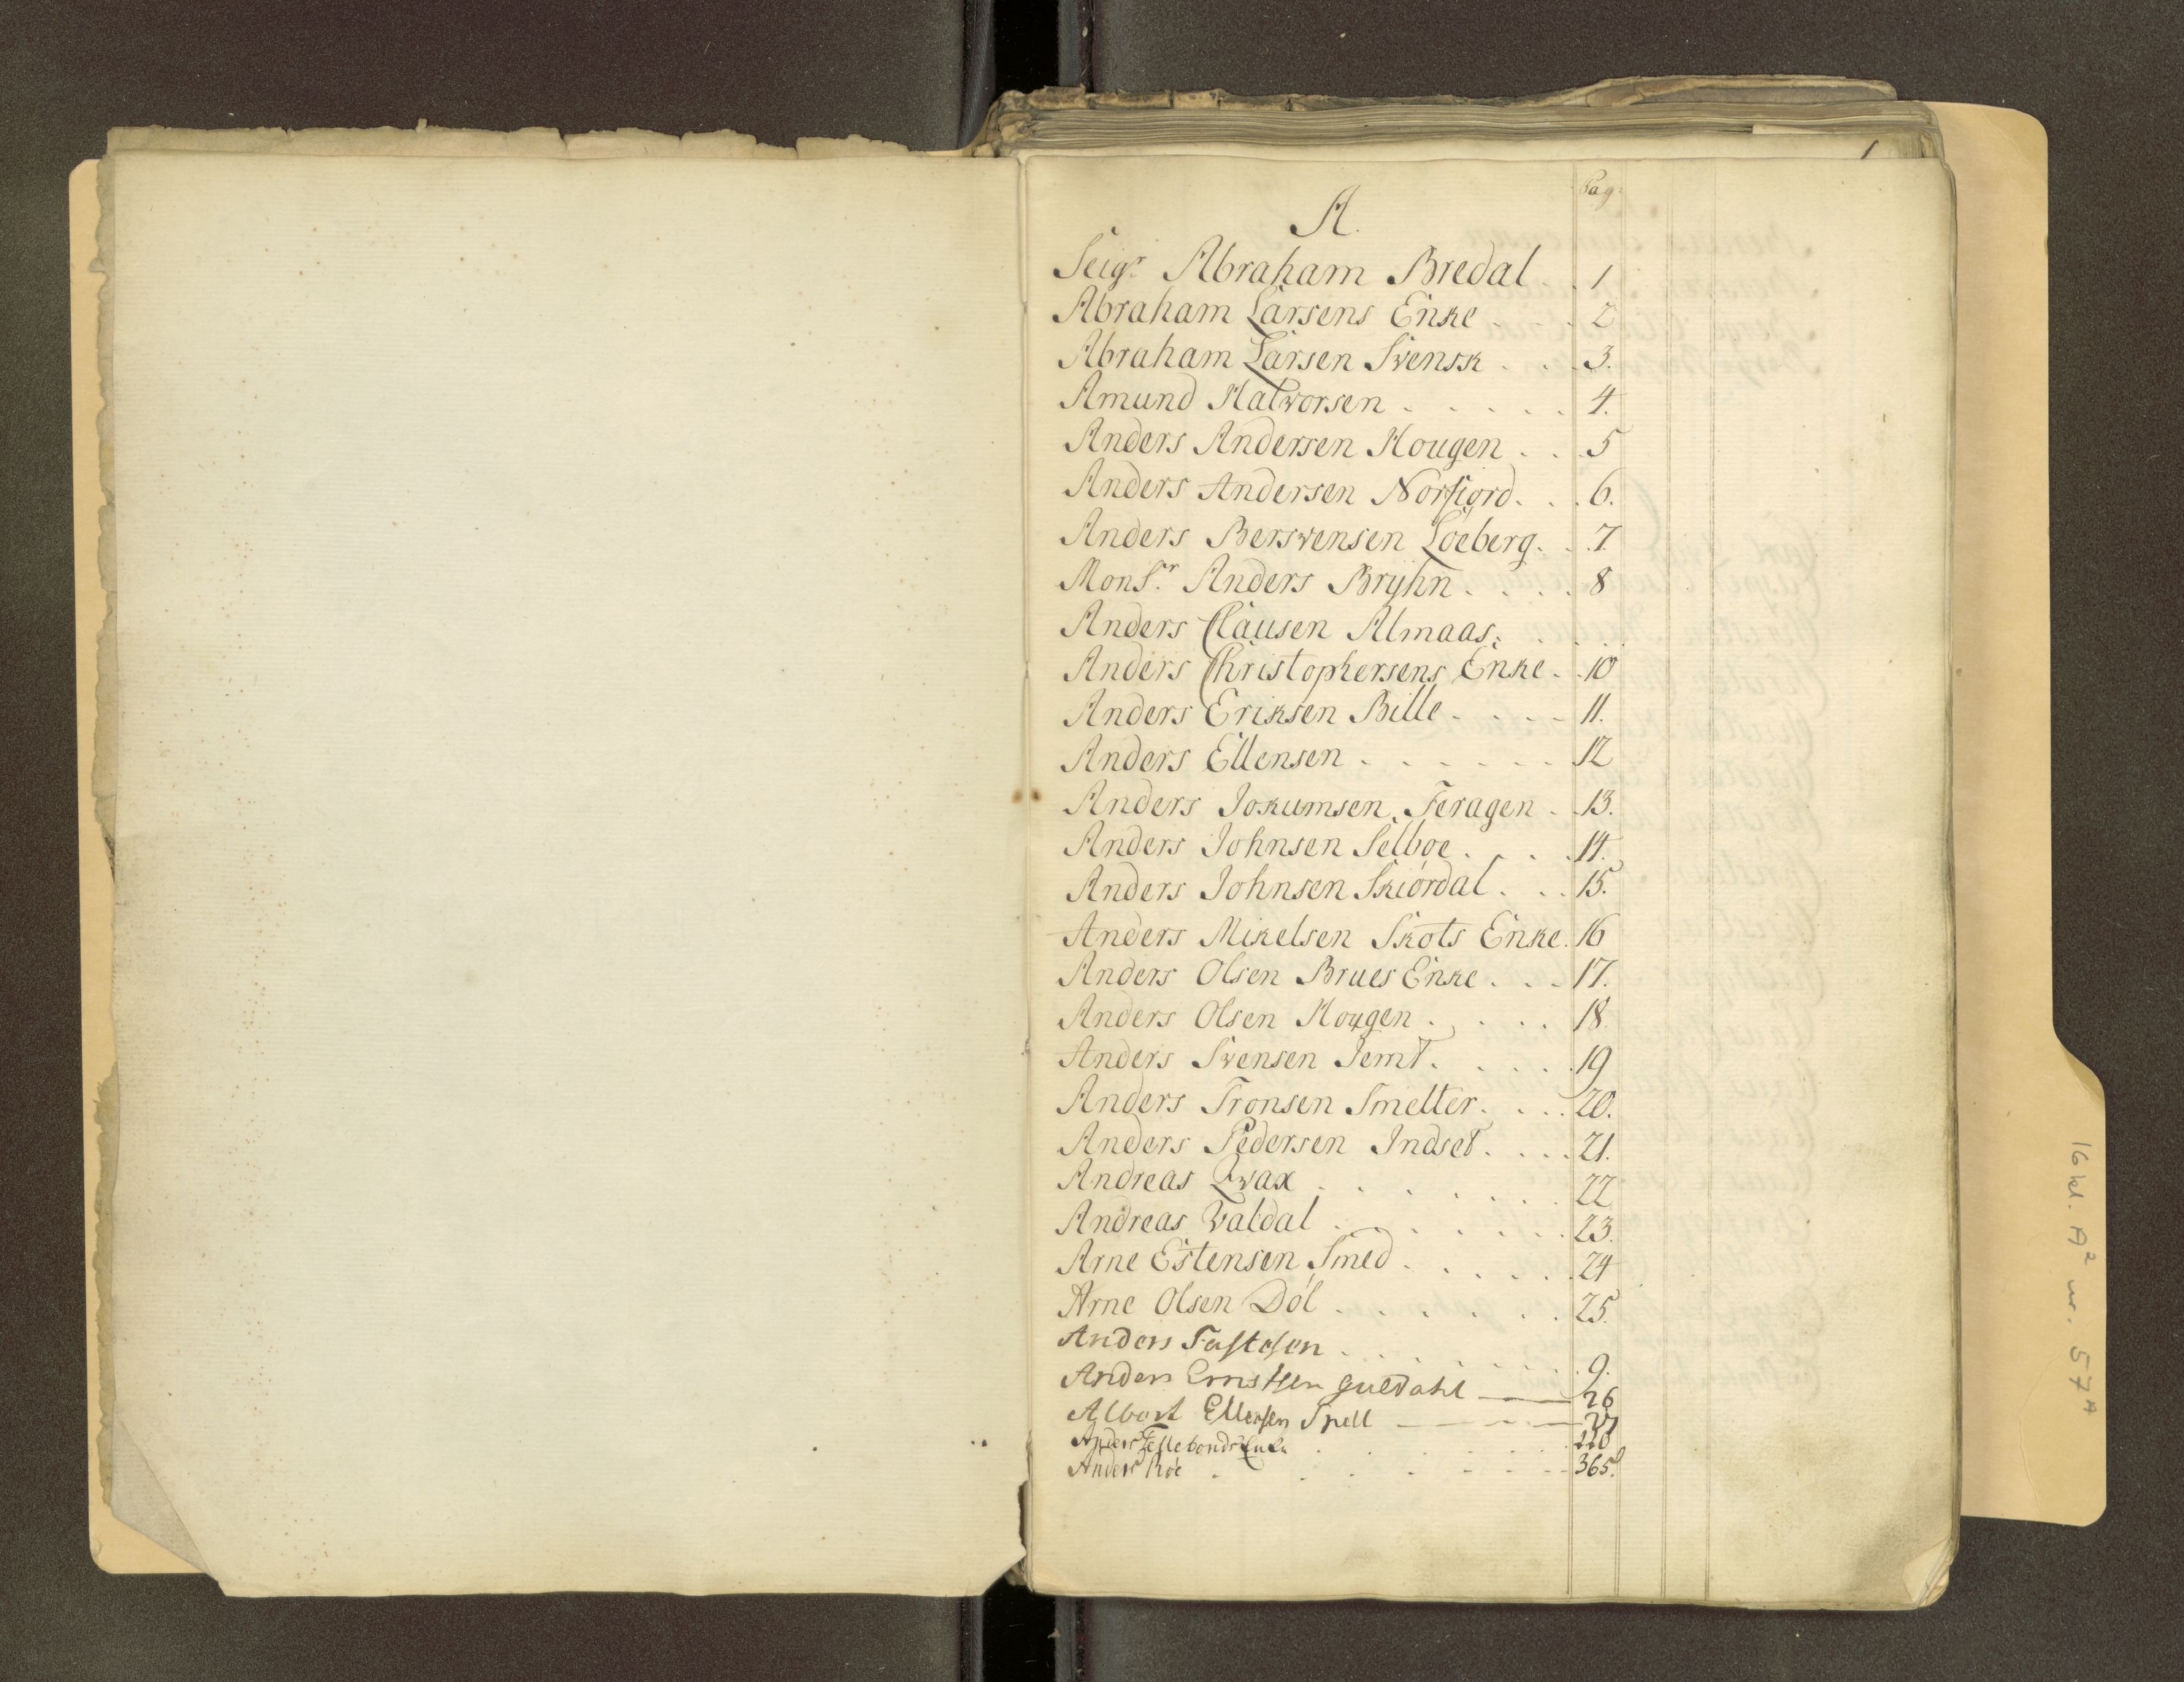 1
Pag:
A.
Seigr Abraham Bredal . . 1
Abraham Larsens Enke . . . 2
Abraham Larsen Svensk . . . 3.
Amund Halvorsen . . . . . 4.
Anders Andersen Hougen . . . 5
Anders Andersen Norfiord . . . 6.
Anders Bersvensen Løeberg . . . 7.
Monsr Anders Bryhn . . . . 8
Anders Clausen Almaas . . .
Anders Christophersens Enke . . 10
Anders Eriksen Bille . . . . 11.
Anders Ellensen . . . . . . 12
Anders Jokumsen Feragen . . 13.
Anders Johnsen Selboe . . . . 14.
Anders Johnsen Skiørdal . . . 15.
Anders Mikelsen Skots Enke . 16
Anders Olsen Brues Enke . . . 17.
Anders Olsen Hougen . . . . . 18
Anders Svensen Jemt . . . . 19
Anders Tronsen Smelter . . . . 20.
Anders Pedersen Indset . . . . 21.
Andreas Qvax . . . . . . . 22
Andreas Valdal . . . . . . 23.
Arne Estensen Smed . . . . . 24
Arne Olsen Døl . . . . . . 25.
Anders Fastesen . . . . . . . 9.
Anders Ernstsen Guldahl — — 26
Albert Ellensen Spell — — — 27
Anders Enke . . . . . . 220
Anders Roe . . . . . . . 365.
16 kl. A2 nr. 57A